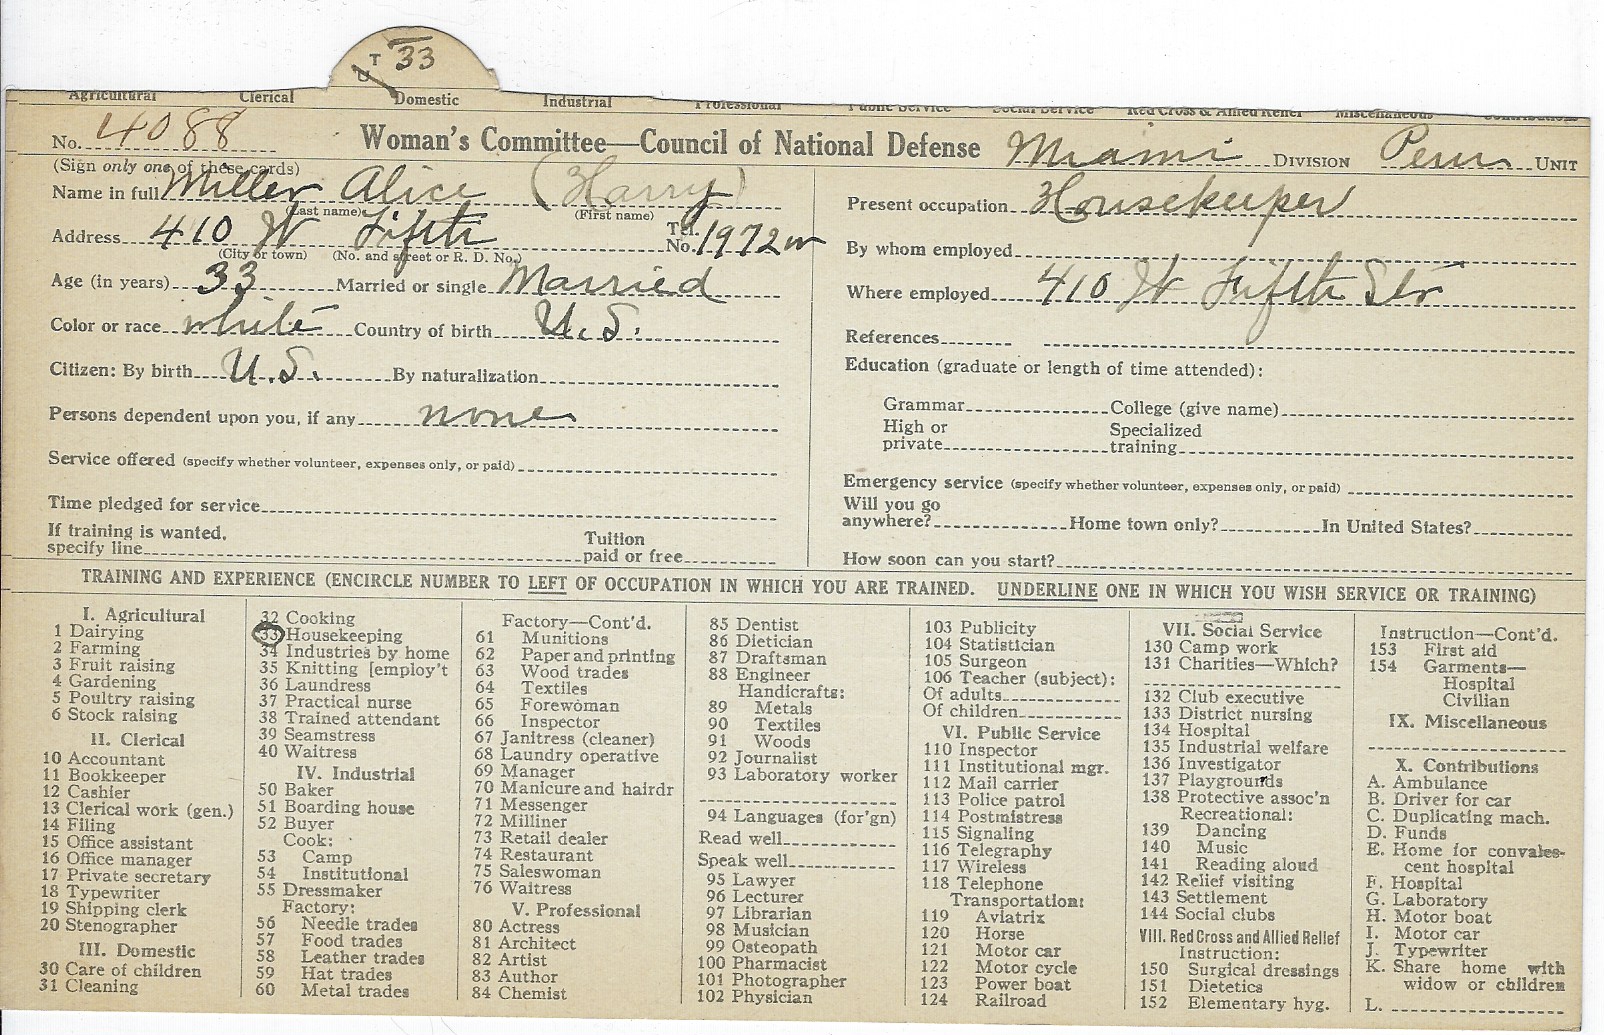 T 33
U
Agricultural Clerical Domestic Industrial Professional Public Service Social Service Red Cross & Allied Relief Miscellaneous Contributions
No. 4088 Woman's Committee—Council of National Defense Miami DIVISION Peru UNIT
(Sign only one of these cards)
Name in full Miller Alice (Harry)
(Last name) (First name)
Address 410 W Fifth Tel. No. 1972w
(City or town) (No. and street or R. D. No.)
Age (in years) 33 Married or single Married
Color or race white Country of birth U.S.
Citizen: By birth U.S. By naturalization
Persons dependent upon you, if any none
Service offered (specify whether volunteer, expenses only, or paid)
Time pledged for service
If training is wanted, specify line Tuition paid or free
Present occupation Housekeeper
By whom employed
Where employed 410 W Fifth Str
References
Education (graduate or length of time attended):
Grammar College (give name)
High or private Specialized training
Emergency service (specify whether volunteer, expenses only, or paid)
Will you go anywhere? Home town only? In United States?
How soon can you start?
TRAINING AND EXPERIENCE (ENCIRCLE NUMBER TO LEFT OF OCCUPATION IN WHICH YOU ARE TRAINED. UNDERLINE ONE IN WHICH YOU WISH SERVICE OR TRAINING)
I. Agricultural
1 Dairying
2 Farming
3 Fruit raising
4 Gardening
5 Poultry raising
6 Stock raising
II. Clerical
10 Accountant
11 Bookkeeper
12 Cashier
13 Clerical work (gen.)
14 Filing
15 Office assistant
16 Office manager
17 Private secretary
18 Typewriter
19 Shipping clerk
20 Stenographer
III. Domestic
30 Care of children
31 Cleaning
32 Cooking
33 Housekeeping
34 Industries by home
35 Knitting [employ't
36 Laundress
37 Practical nurse
38 Trained attendant
39 Seamstress
40 Waitress
IV. Industrial
50 Baker
51 Boarding house
52 Buyer
Cook:
53 Camp
54 Institutional
55 Dressmaker
Factory:
56 Needle trades
57 Food trades
58 Leather trades
59 Hat trades
60 Metal trades
Factory—Cont'd.
61 Munitions
62 Paper and printing
63 Wood trades
64 Textiles
65 Forewoman
66 Inspector
67 Janitress (cleaner)
68 Laundry operative
69 Manager
70 Manicure and hairdr
71 Messenger
72 Milliner
73 Retail dealer
74 Restaurant
75 Saleswoman
76 Waitress
V. Professional
80 Actress
81 Architect
82 Artist
83 Author
84 Chemist
85 Dentist
86 Dietician
87 Draftsman
88 Engineer
Handicrafts:
89 Metals
90 Textiles
91 Woods
92 Journalist
93 Laboratory worker
94 Languages (for'gn)
Read well
Speak well
95 Lawyer
96 Lecturer
97 Librarian
98 Musician
99 Osteopath
100 Pharmacist
101 Photographer
102 Physician
103 Publicity
104 Statistician
105 Surgeon
106 Teacher (subject):
Of adults
Of children
VI. Public Service
110 Inspector
111 Institutional mgr.
112 Mail carrier
113 Police patrol
114 Postmistress
115 Signaling
116 Telegraphy
117 Wireless
118 Telephone
Transportation:
119 Aviatrix
120 Horse
121 Motor car
122 Motor cycle
123 Power boat
124 Railroad
VII. Social Service
130 Camp work
131 Charities—Which?
132 Club executive
133 District nursing
134 Hospital
135 Industrial welfare
136 Investigator
137 Playgrounds
138 Protective assoc'n
Recreational:
139 Dancing
140 Music
141 Reading aloud
142 Relief visiting
143 Settlement
144 Social clubs
VIII. Red Cross and Allied Relief
Instruction:
150 Surgical dressings
151 Dietetics
152 Elementary hyg.
Instruction—Cont'd.
153 First aid
154 Garments—
Hospital
Civilian
IX. Miscellaneous
X. Contributions
A. Ambulance
B. Driver for car
C. Duplicating mach.
D. Funds
E. Home for convales-
cent hospital
F. Hospital
G. Laboratory
H. Motor boat
I. Motor car
J. Typewriter
K. Share home with
widow or children
L.